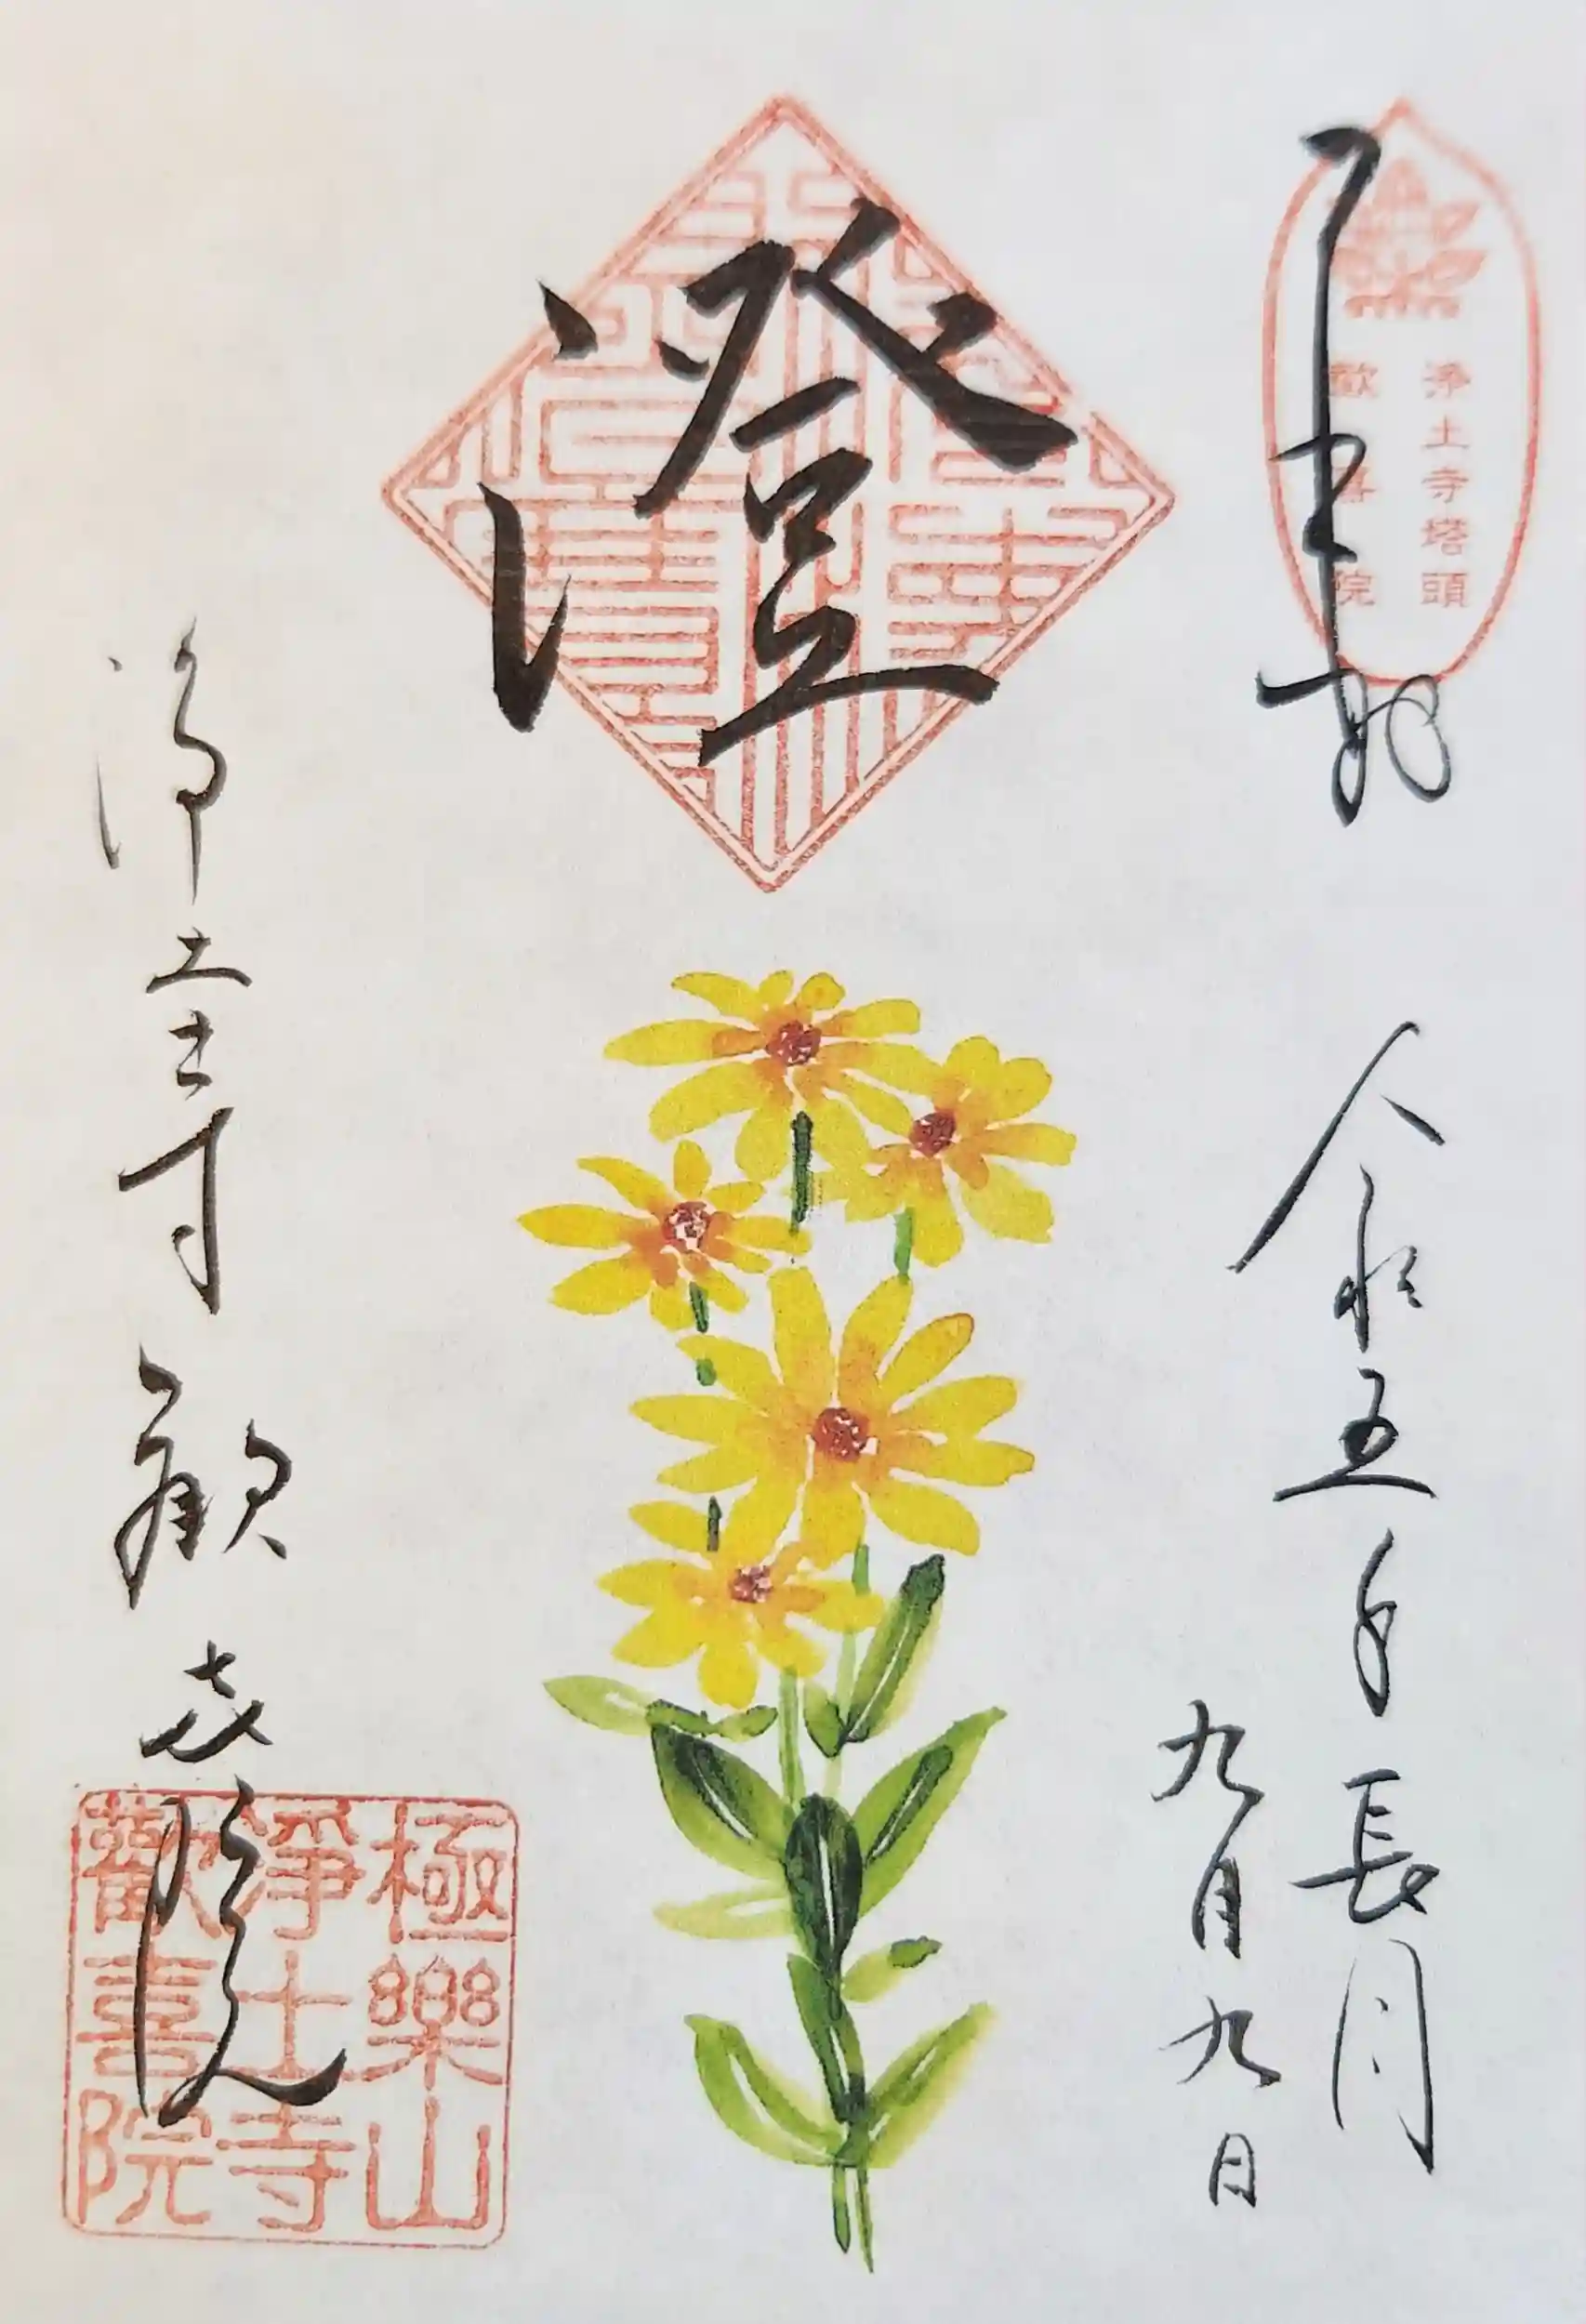 奉拝
浄土寺塔頭
歓喜院
令和五年長月
九月九日
澄
浄土寺歓喜院
極樂山
淨土寺
歡喜院